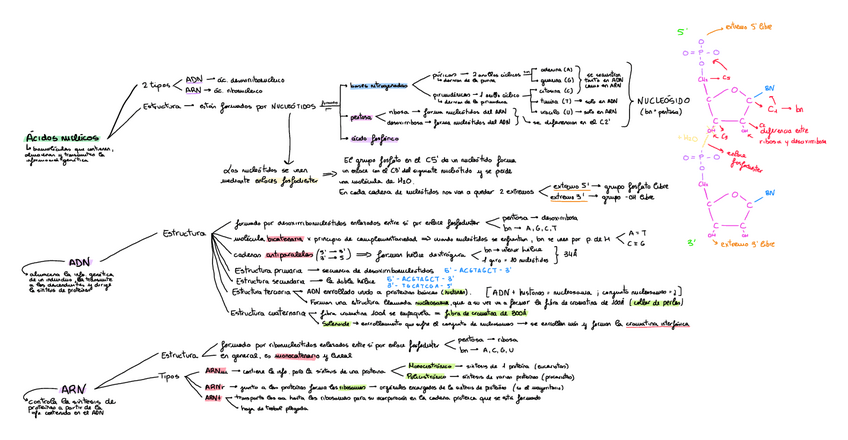 Ácidos nucleicos
biomoléculas que contienen, almacenan y transmiten la información genética
2 tipos
ADN → ác. desoxirribonucleico
ARN → ác. ribonucleico
Estructura → están formados por NUCLEÓTIDOS
bases nitrogenadas
púricas → 2 anillos cíclicos
adenina (A)
guanina (G)
se encuentra tanto en ADN como en ARN
pirimidínicas → 1 anillo cíclico
citosina (C)
timina (T) → solo en ADN
uracilo (U) → solo en ARN
pentosa
ribosa → forma nucleótidos del ARN
desoxirribosa → forma nucleótidos del ADN
se diferencian en el C2'
ácido fosfórico
NUCLEÓSIDO
(bn + pentosa)
Los nucleótidos se unen mediante enlaces fosfodiéster
El grupo fosfato en el C5' de un nucleótido forma
un enlace con el C3' del siguiente nucleótido y se pierde
una molécula de H2O.
En cada cadena de nucleótidos nos van a quedar 2 extremos
extremo 5' → grupo fosfato libre
extremo 3' → grupo -OH libre
5'
extremo 5' libre
C5
BN
C1 → bn
C3
diferencia entre ribosa y desoxirribosa
H2O
enlace fosfodiéster
BN
3'
extremo 3' libre
ADN
Estructura
formado por desoxirribonucleótidos enlazados entre sí por enlace fosfodiéster
pentosa → desoxirribosa
bn → A, G, C, T
molécula bicatenaria × principio de complementariedad → cuando nucleótidos se enfrentan, bn se unen por p de H
A = T
C ≡ G
cadenas antiparalelas
forman hélice dextrógira
1 giro = 10 nucleótidos
34Å
Estructura primaria → secuencia de desoxirribonucleótidos 5' - ACGTAGCT - 3'
Estructura secundaria → la doble hélice
5' - ACGTAGCT - 3'
3' - TGCATCGA - 5'
Estructura terciaria → ADN enrollado unido a proteínas básicas (histonas).
[ADN + histonas = nucleosoma; conjunto nucleosomas = ]
Forman una estructura llamada nucleosoma, que a su vez va a formar la fibra de cromatina de 100Å (collar de perlas)
Estructura cuaternaria → fibra cromatina 100Å se empaqueta → fibra de cromatina de 300Å
Solenoide → enrollamiento que sufre el conjunto de nucleosomas → se enrollan más y forman la cromatina interfásica
ARN
controla la síntesis de proteínas a partir de la info contenida en el ADN
Estructura
formado por ribonucleótidos enlazados entre sí por enlace fosfodiéster
pentosa → ribosa
bn → A, C, G, U
en general, es monocatenario y lineal
Tipos
ARNm → contiene la info. para la síntesis de una proteína
Monocistrónico → síntesis de 1 proteína (eucariotas)
Policistrónico → síntesis de varias proteínas (procariotas)
ARNr → junto a las proteínas forma los ribosomas → orgánulos encargados de la síntesis de proteína
ARNt → transporta los aa hasta los ribosomas para su incorporación en la cadena proteica que se está formando
hoja de trébol plegada